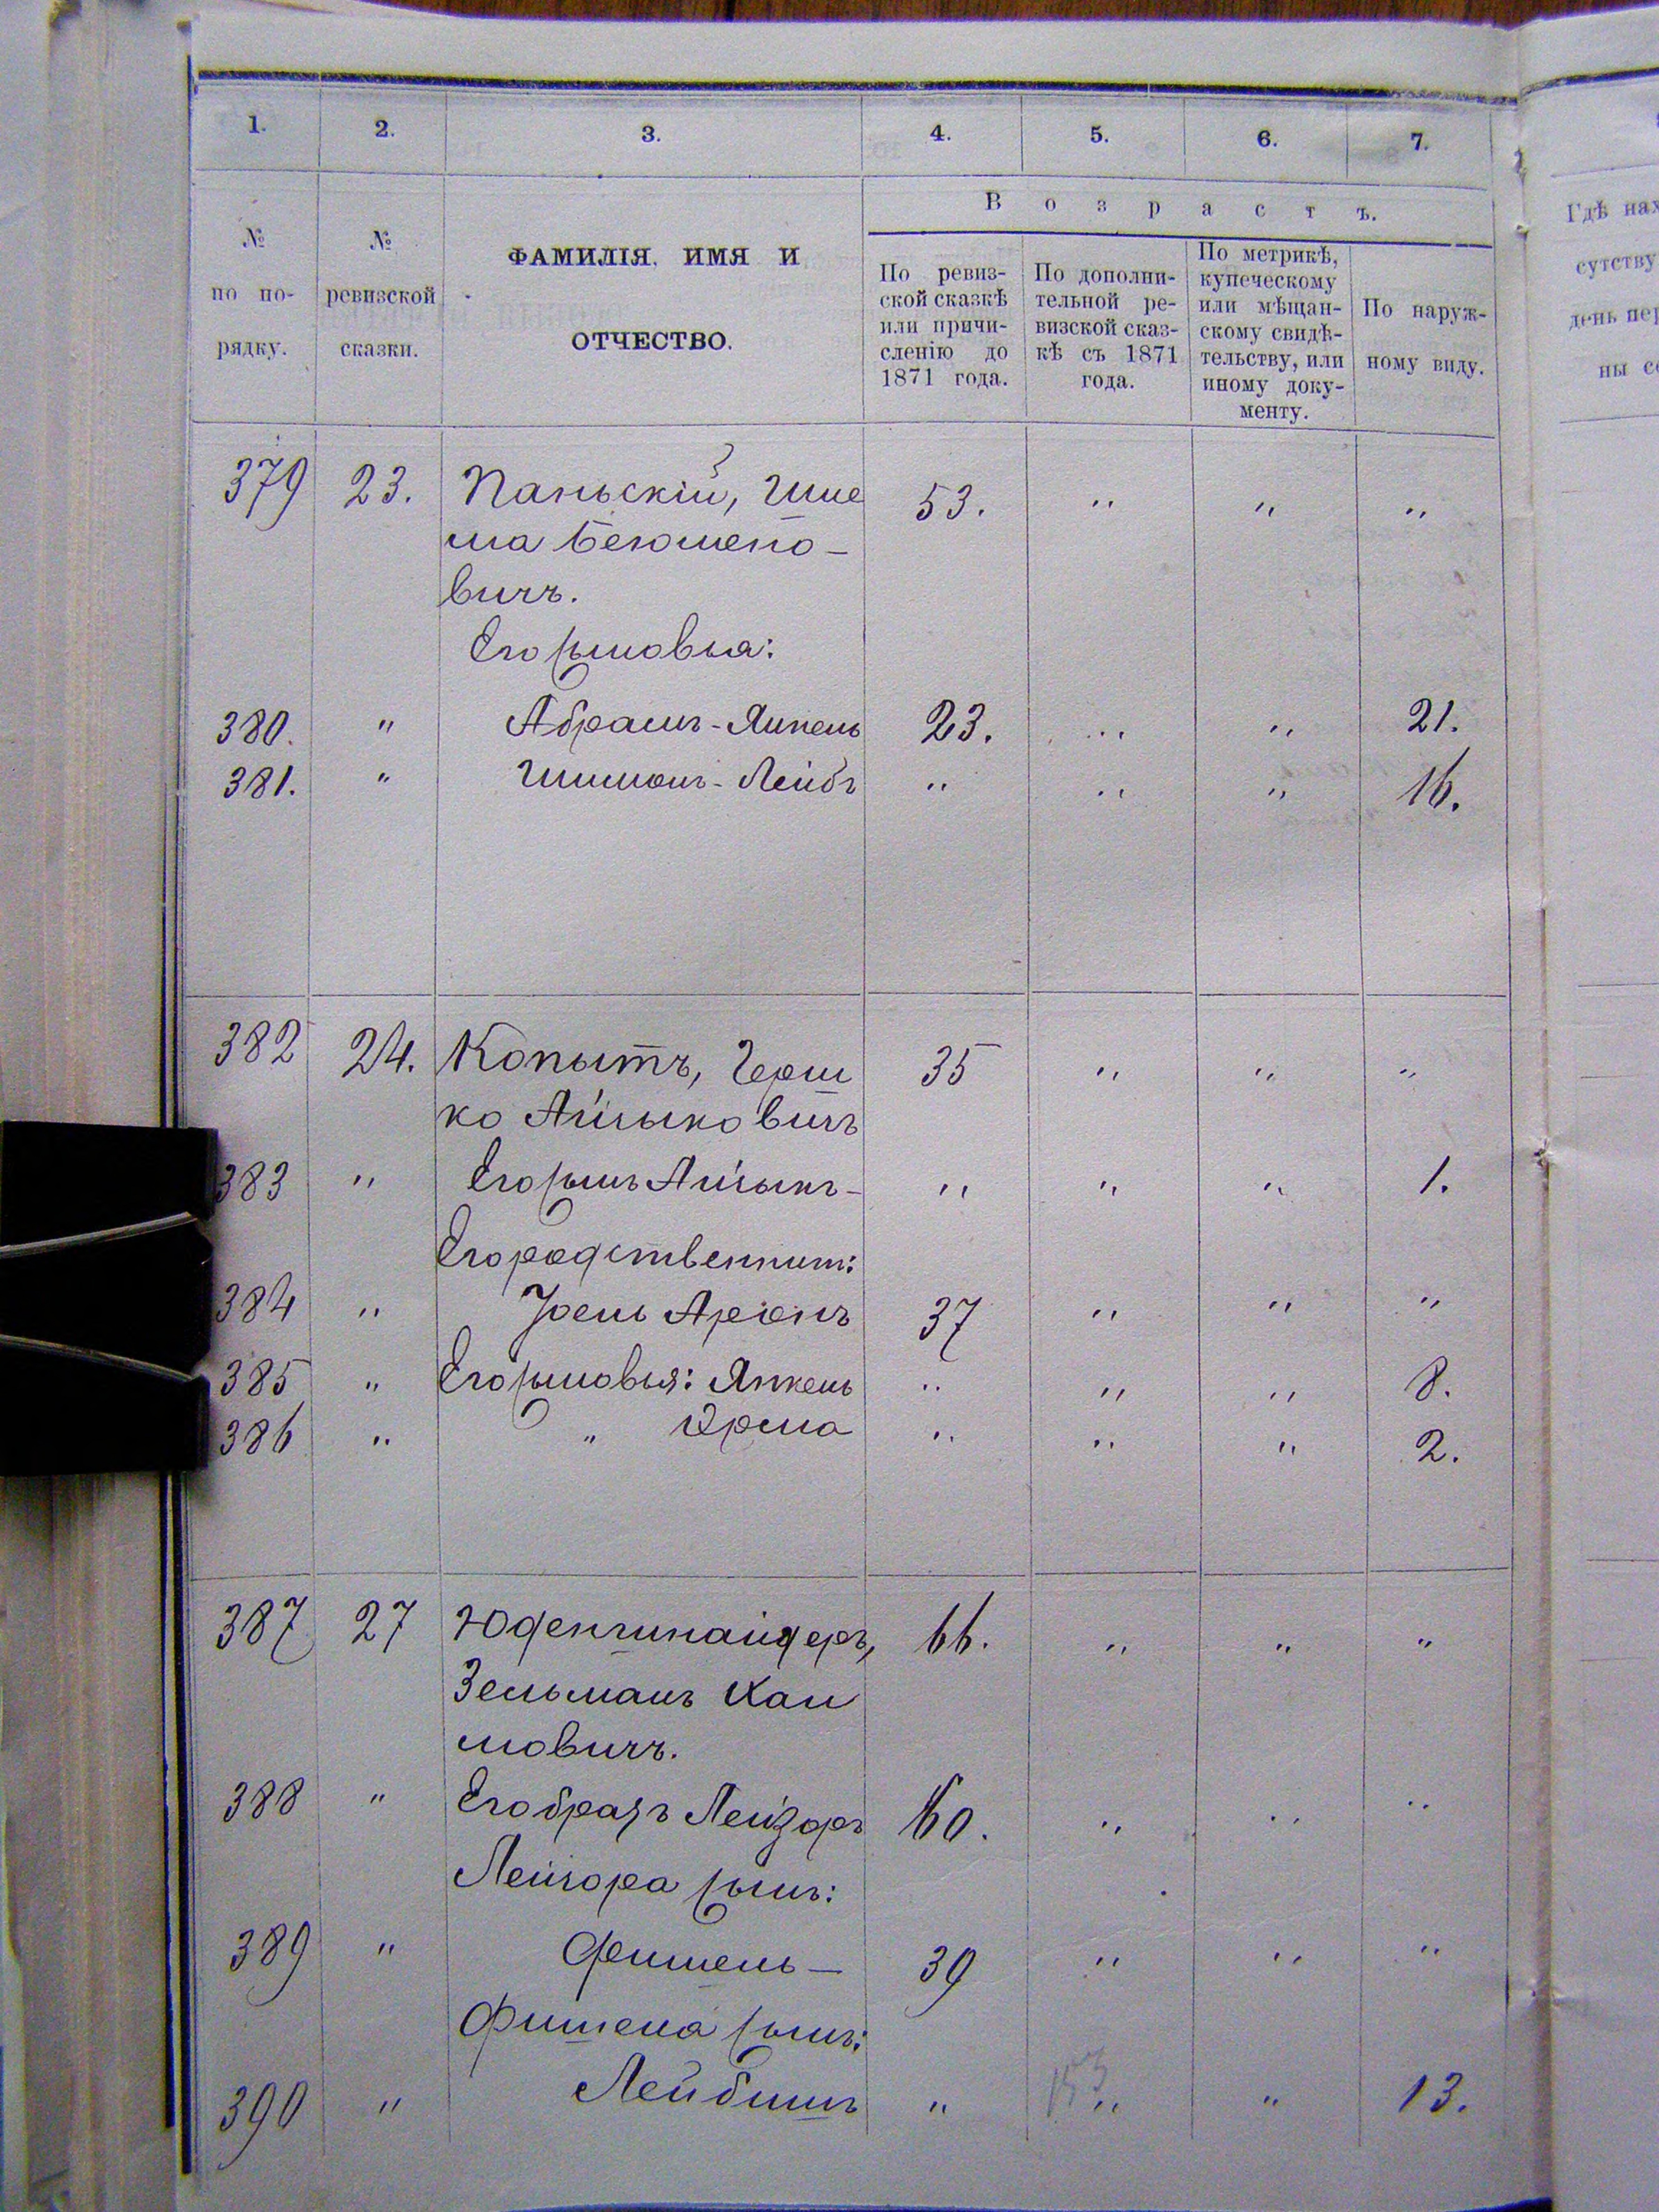 1. 2. 3. 4. 5. 6. 7.
Возрастъ.
№ по порядку.
№ ревизской сказки.
ФАМИЛІЯ, ИМЯ И
ОТЧЕСТВО.
По ревиз-
ской сказкѣ
или причи-
сленію до
1871 года.
По дополни-
тельной ре-
визской сказ-
кѣ съ 1871
года.
По метрикѣ,
купеческому
или мѣщан-
скому свидѣ-
тельству, или
иному доку-
менту.
По наруж-
ному виду.
379 23. Паньскій, Шле 53. " " "
ма
вичъ.
Его сыновья:
380. " Абрамъ-Янкель 23. " " 21.
381. " Шимонъ-Лейбъ " " " 16.
382 24. Копытъ, Герш 35 " " "
ко Айзыковичъ
383 " Его сынъ Айзыкъ- " " " 1.
Его родственникъ:
384 " Іоель Аронъ 37 " " "
385 " Его сыновья: Янкель " " " 8.
386 " " Срма " " " 2.
387 27 Юденшнайдеръ, 66. " " "
Зельманъ Хаи
мовичъ.
388 " Его братъ Лейзоръ 60. " " "
Лейзора сынъ:
389 " Фишель- 39 " " "
Фишеля сынъ:
390 " Лейбишъ " " " 13.
Гдѣ нах
сутству
день пер
ны со